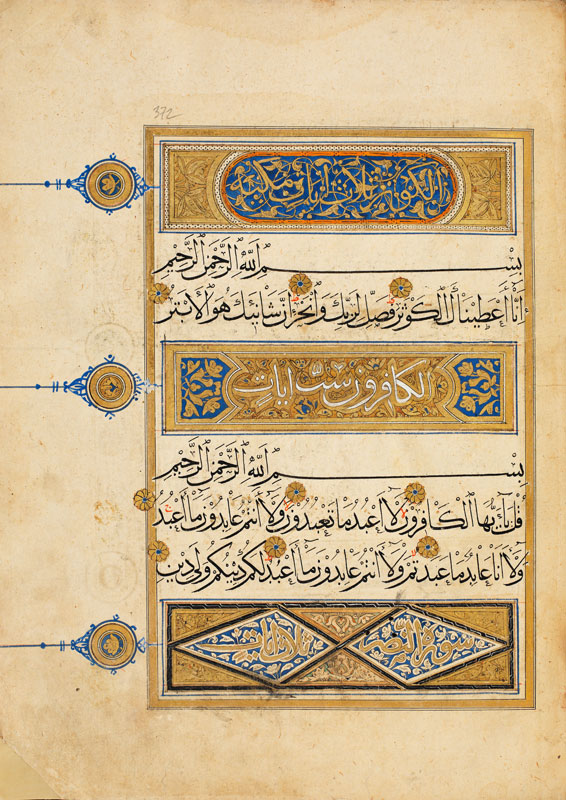 372
الكوثر ثلاث آيات مكية
بِسْمِ اللَّهِ الرَّحْمَٰنِ الرَّحِيمِ
إِنَّا أَعْطَيْنَاكَ الْكَوْثَرَ فَصَلِّ لِرَبِّكَ وَانْحَرْ إِنَّ شَانِئَكَ هُوَ الْأَبْتَرُ
الكافرون ست آيات
بِسْمِ اللَّهِ الرَّحْمَٰنِ الرَّحِيمِ
قُلْ يَا أَيُّهَا الْكَافِرُونَ لَا أَعْبُدُ مَا تَعْبُدُونَ وَلَا أَنْتُمْ عَابِدُونَ مَا أَعْبُدُ
وَلَا أَنَا عَابِدٌ مَا عَبَدْتُمْ وَلَا أَنْتُمْ عَابِدُونَ مَا أَعْبُدُ لَكُمْ دِينُكُمْ وَلِيَ دِينِ
سورة النصر ثلاث آيات